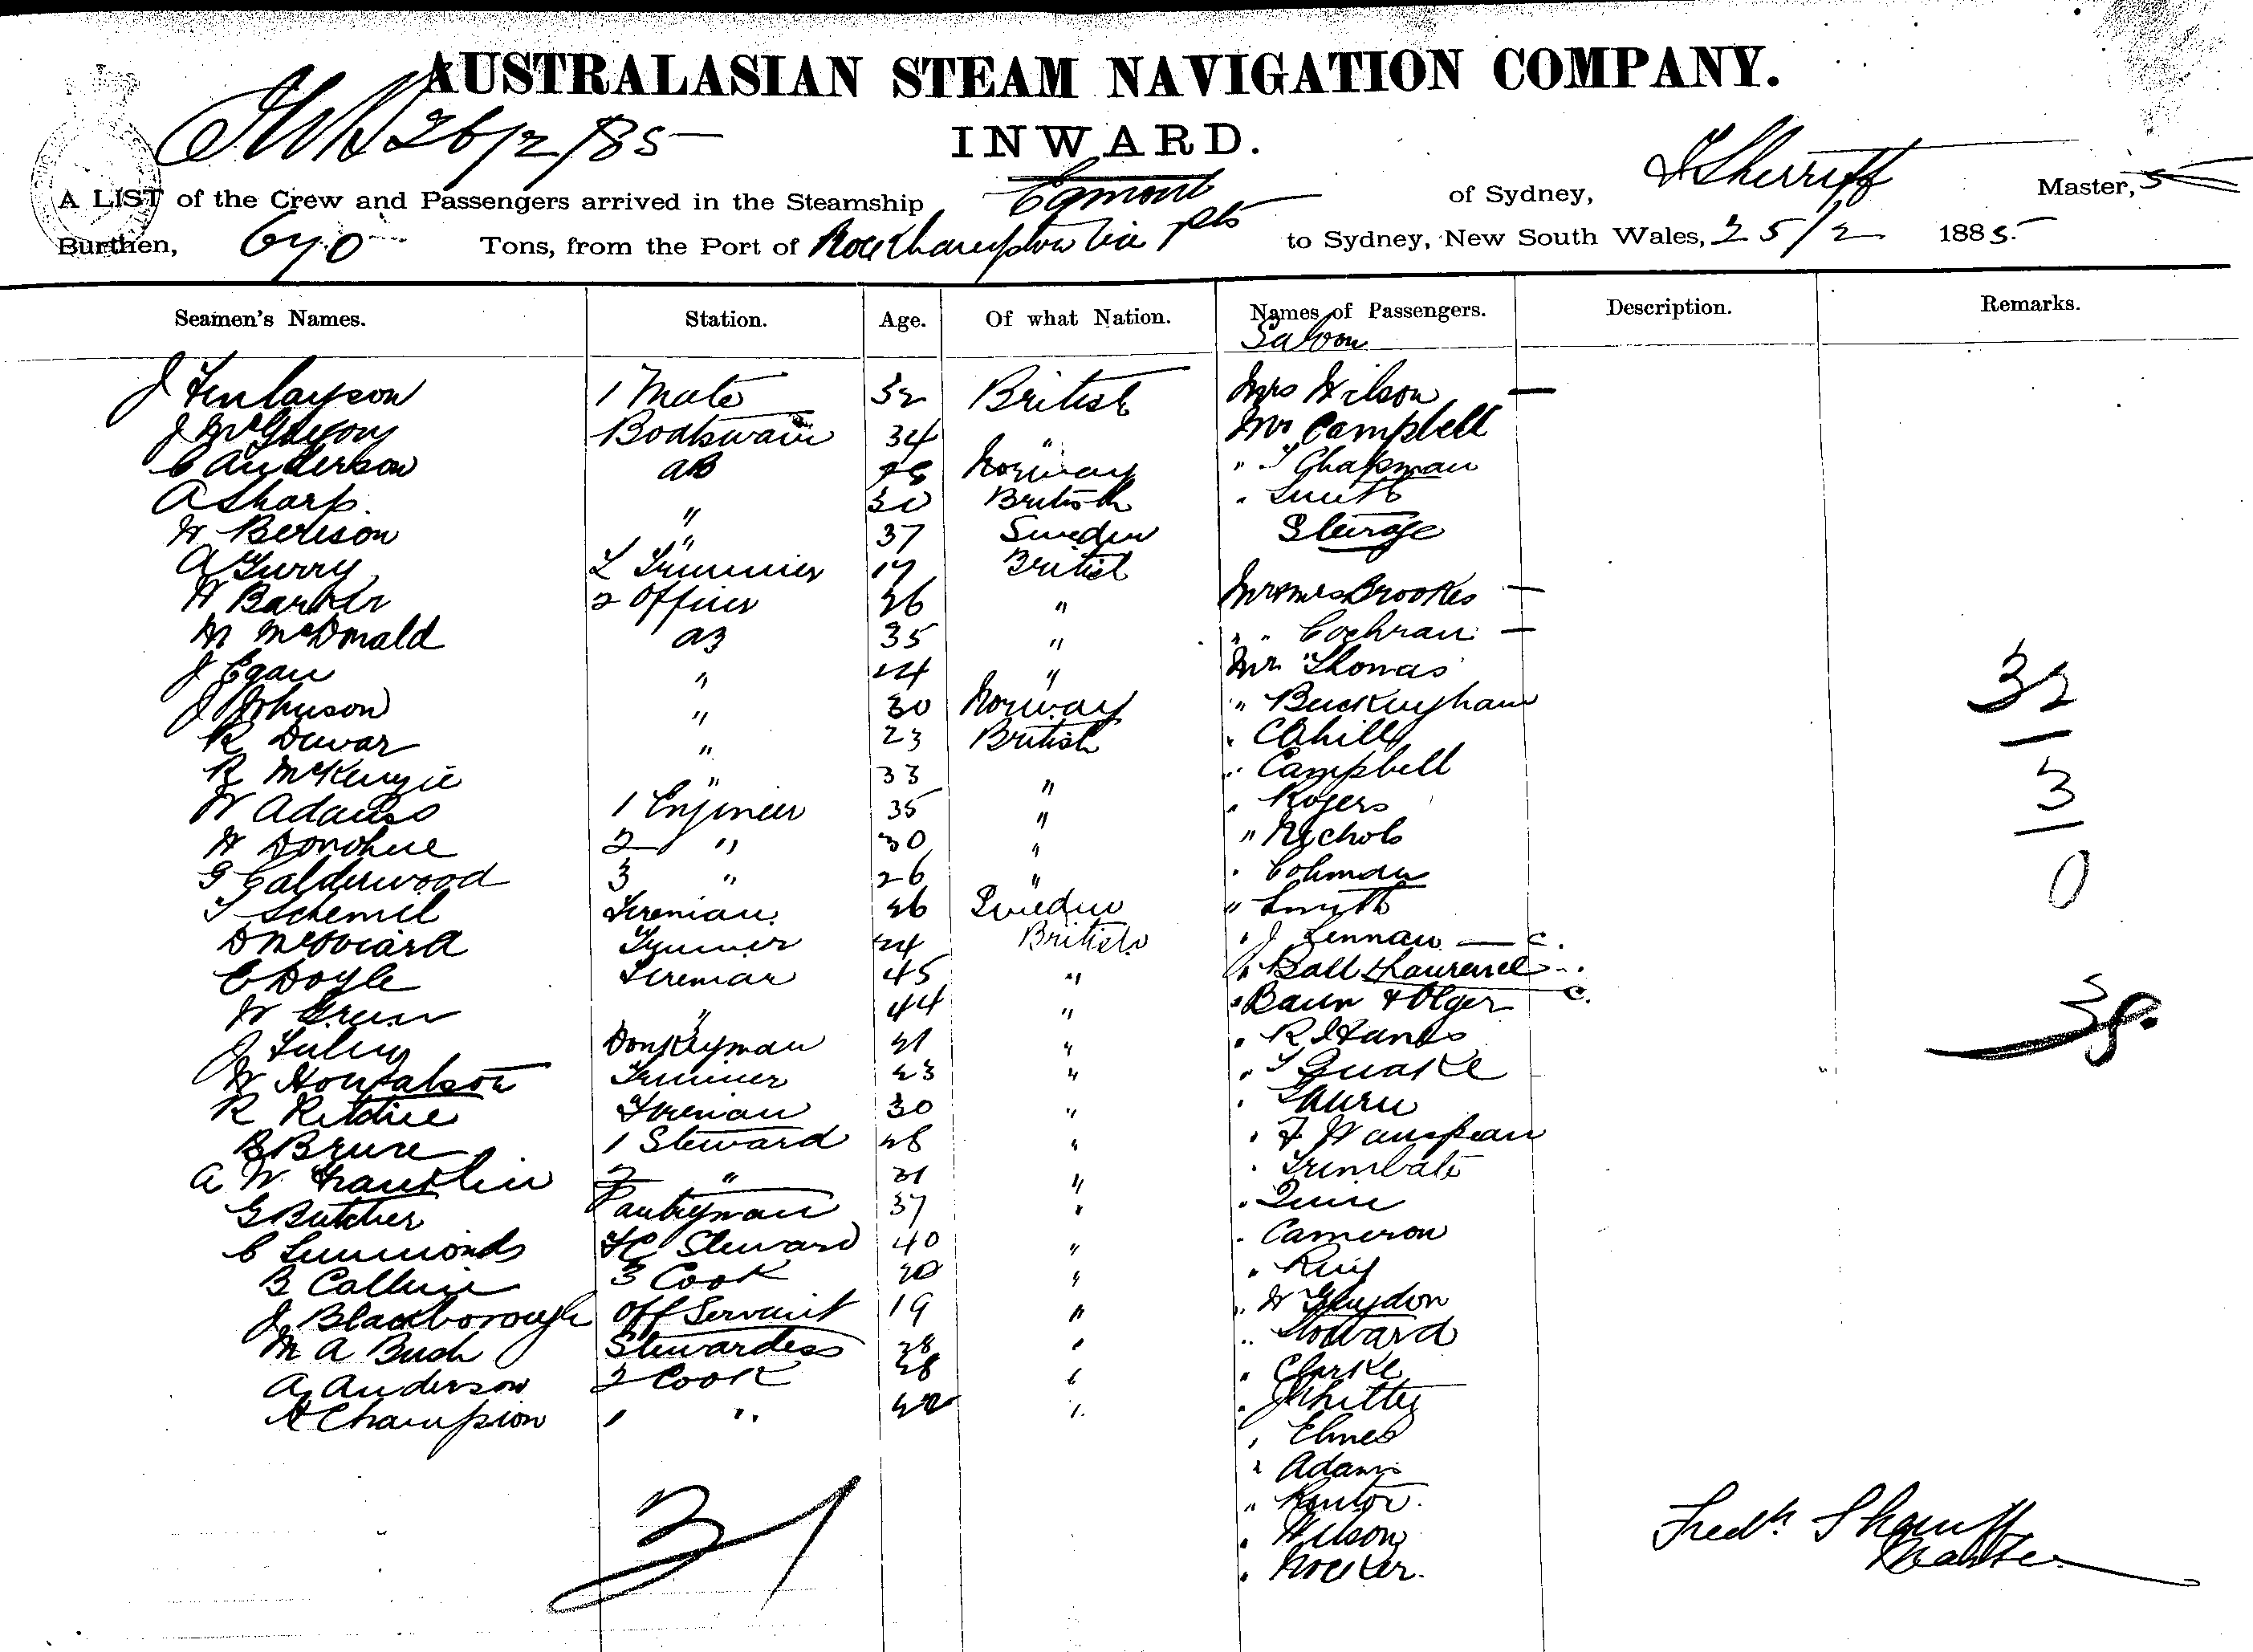 AUSTRALASIAN STEAM NAVIGATION COMPANY.
26/2/85
INWARD.
A LIST of the Crew and Passengers arrived in the Steamship Egmont of Sydney, F Sherriff Master,
Burthen, 670 Tons, from the Port of Rockhampton via pts to Sydney, New South Wales, 25/2 1885.
Seamen's Names. Station. Age. Of what Nation. Names of Passengers. Description. Remarks.
Saloon
J Finlayson 1 Mate 32 British Mrs Wilson —
J McGregory Boatswain 34 " Mr Campbell
C Anderson AB Norway " T Chapman
A Sharp. " 30 British " Smith
H Berison " 37 Sweden Sturge
A Gurry L Trimmer 17 British
H Barker 2 Officer 26 " Mr & Mrs Brookes —
M McDonald AB 35 " " " Cochran —
J Egan " 24 " Mr Thomas
J Johnson " 30 Norway " Buckingham
R Dewar " 23 British " Cahill
R McKenzie " 33 " " Campbell
W Adams 1 Engineer 35 " " Rogers
H Donohue 2 " 30 " " Nichols
G Calderwood 3 " 26 " " Colman
T Schemel Fireman 26 Sweden " Smyth
D Trimmer 24 British " J Lennan — c.
E Doyle Fireman 45 " " Ball & Laurence
W Green " 44 " " Baun & Olger c.
J Donkeyman 21 " " R I Hanes
W Trimmer 23 " " T Quake
R Ritchie Fireman 30 "
B Bruce 1 Steward 28 " " F
A W Franklin 2 " 21 " " Trimbate
G Butcher Pantryman 37 " " Quin
C Simmonds FC Steward 40 " " Cameron
B 3 Cook 20 " " King
J Blackborough Off Servant 19 " " W
M A Bush Stewardess 38 " " Howard
A Anderson 2 Cook 28 " " Clarke
H Champion 1 " 42 " " J Whitty
" Elmes
" Adams
"
" Wilson
"
31
32
3
0
38.
Fredk Sherriff
Master